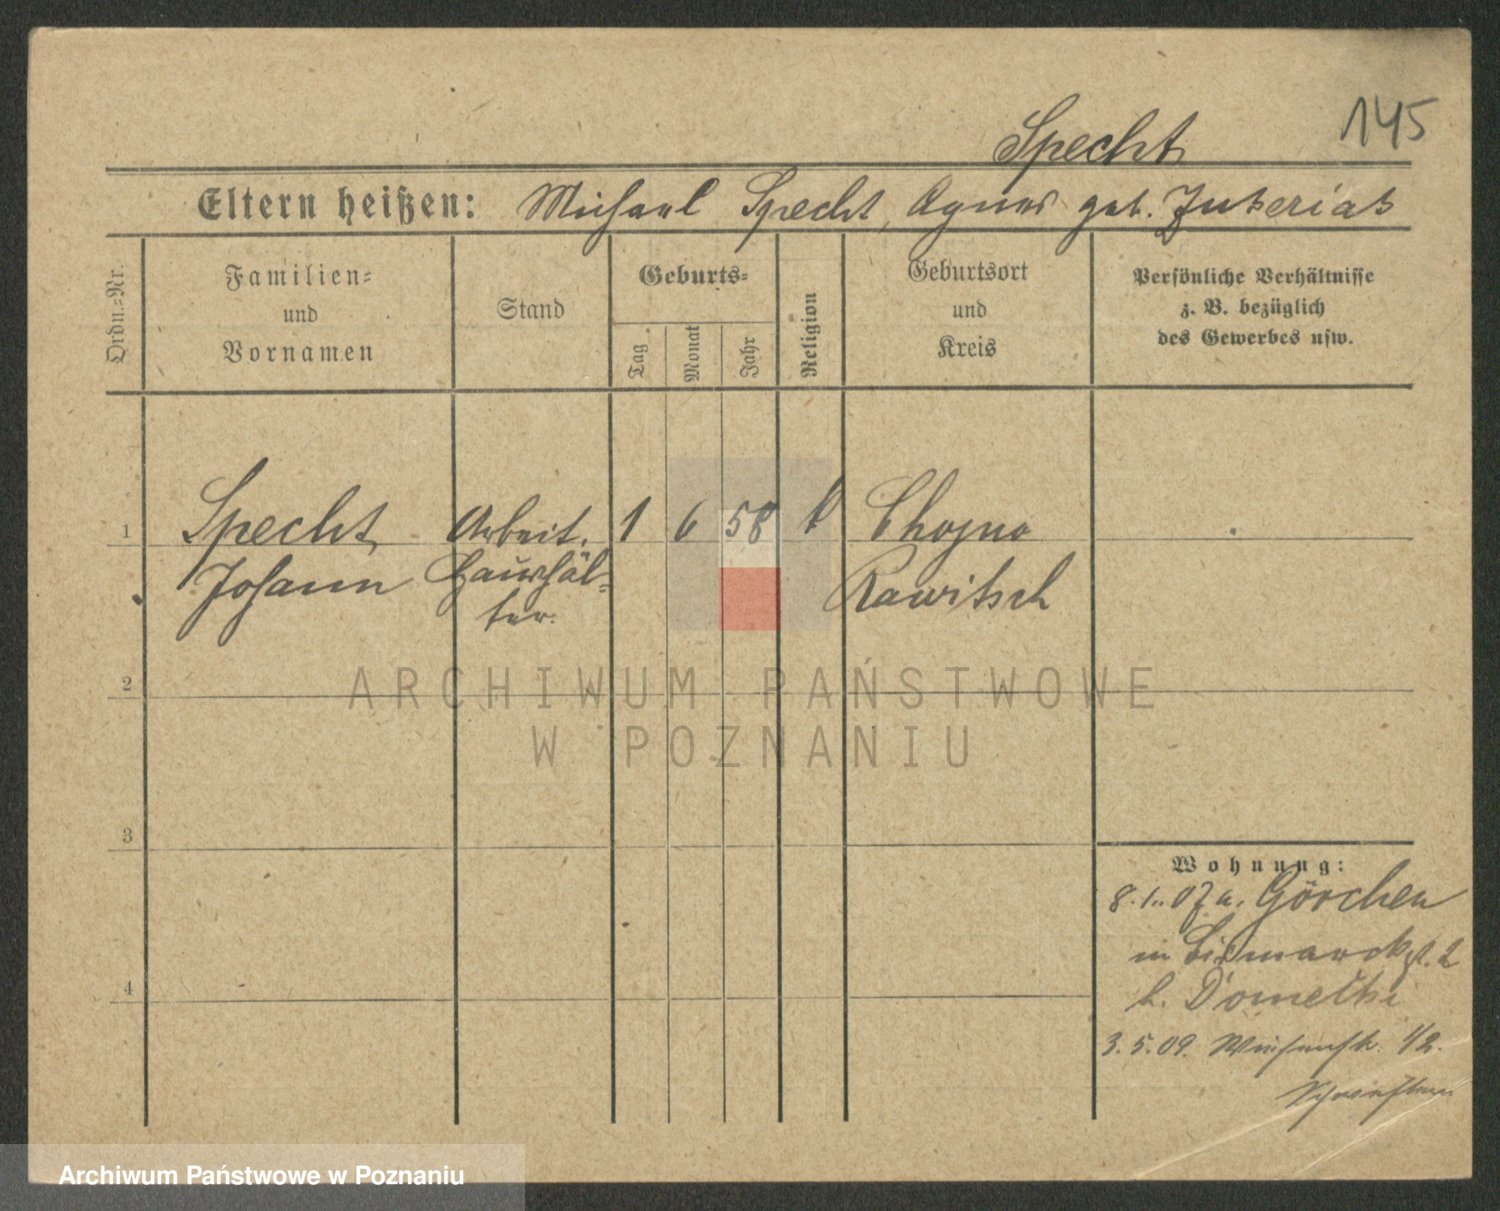 145
Specht
Eltern heißen: Michael Specht, Agnes geb.
Ordn.=Nr.
Familien=
und
Vornamen
Stand
Geburts=
Tag
Monat
Jahr
Religion
Geburtsort
und
Kreis
Persönliche Verhältnisse
z. B. bezüglich
des Gewerbes usw.
1 Specht Arbeit. 1 6 58 k Chojno
Johann Haushäl= Rawitsch
ter.
2
ARCHIWUM PAŃSTWOWE
W POZNANIU
3
Wohnung:
8.1.07 a. Görchen
in Bismarckst. 2
b.
4
3.5.09. 1/2.
Archiwum Państwowe w Poznaniu